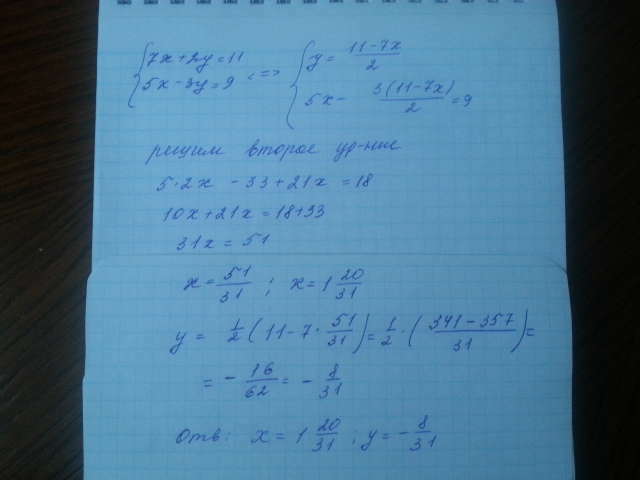 { 7x+2y=11
5x-3y=9 <=> { y= (11-7x)/2
5x- 3(11-7x)/2 =9
решим второе ур-ние
5·2x -33+21x =18
10x+21x=18+33
31x = 51
x= 51/31 ; x=1 20/31
y= 1/2 (11-7· 51/31)= 1/2 · ( (341-357)/31 )=
= - 16/62 = - 8/31
Отв: x = 1 20/31 ; y= - 8/31